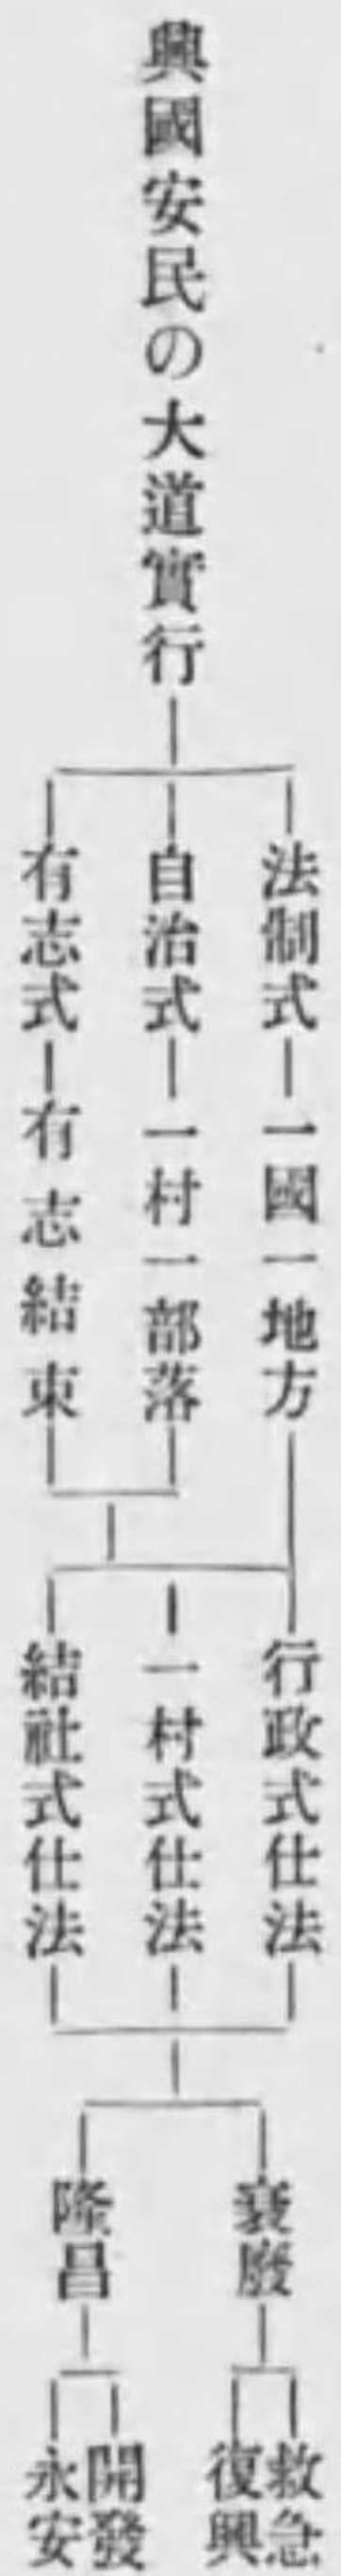 興國安民の大道實行
法制式
一國一地方
自治式
一村一部落
有志式
有志結束
行政式仕法
一村式仕法
結社式仕法
衰廢
隆昌
救急
復興
開發
永安